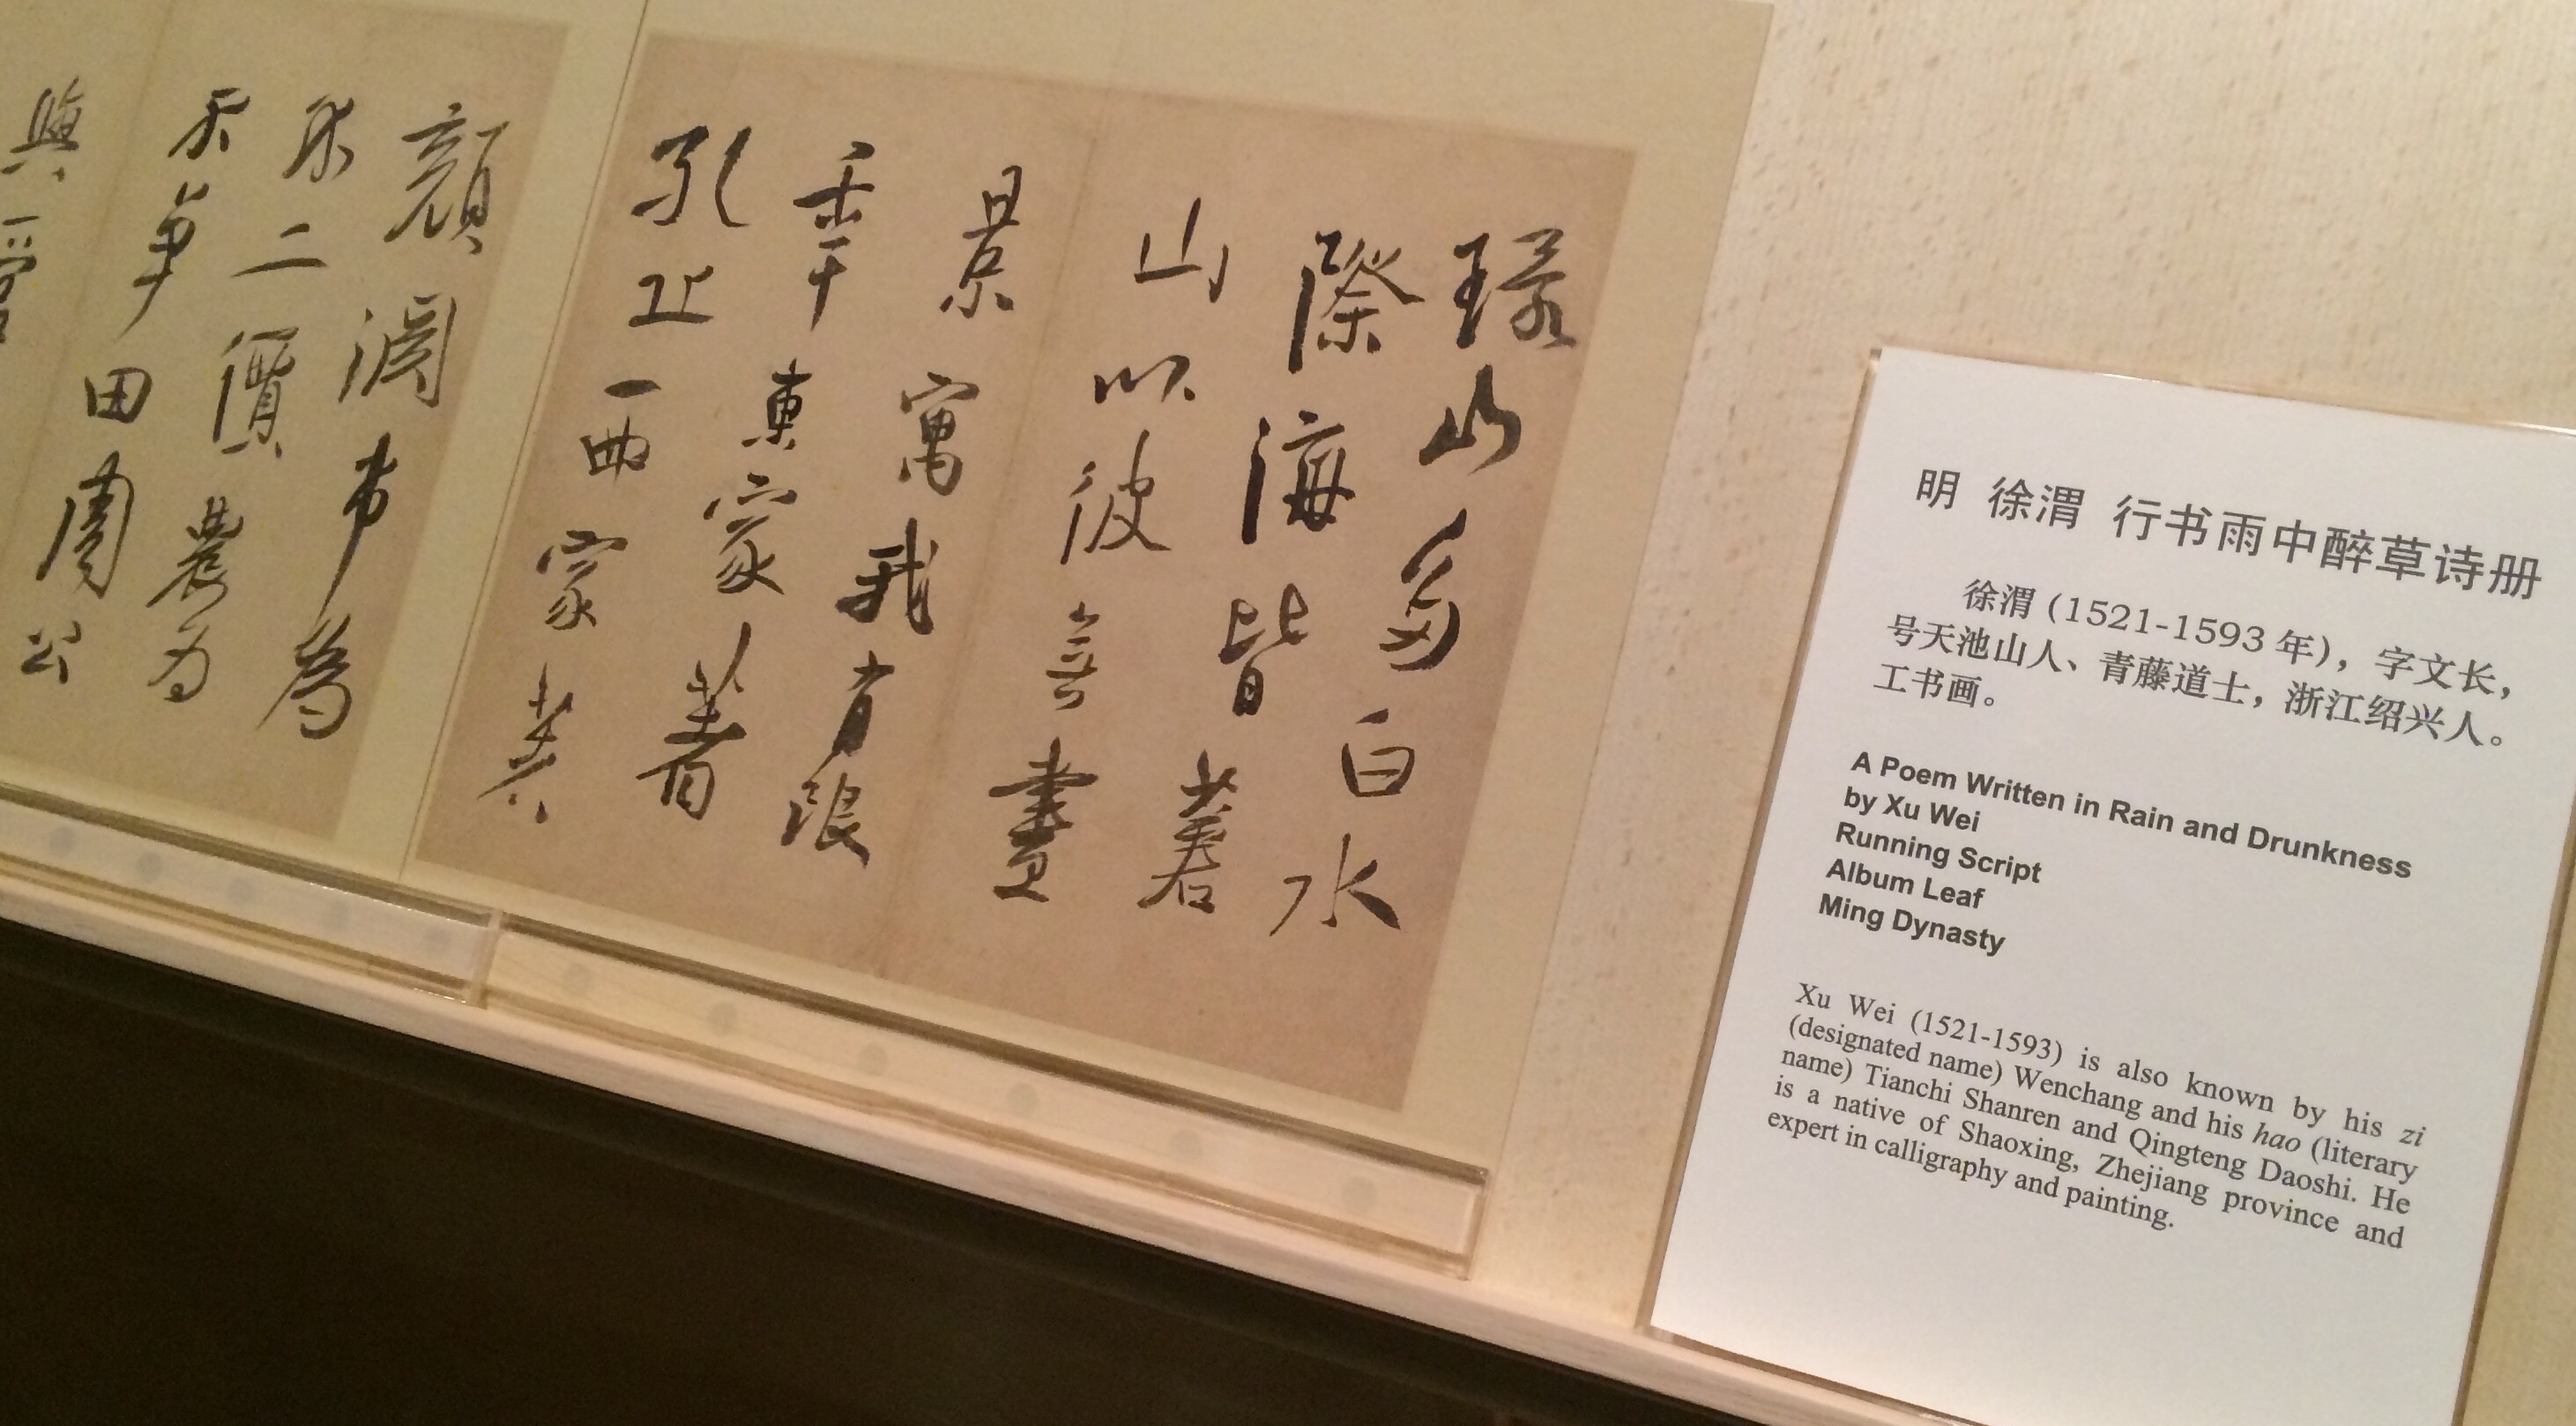 環州多白水
際海皆蒼
山以彼無盡
景寓我有限
年東家著
孔丘西家著
顏淵市為
不二價農為
不爭田周公
與管
明 徐渭 行书雨中醉草诗册
徐渭 (1521-1593 年)，字文长，
号天池山人、青藤道士，浙江绍兴人。
工书画。
A Poem Written in Rain and Drunkness
by Xu Wei
Running Script
Album Leaf
Ming Dynasty
Xu Wei (1521-1593) is also known by his zi
(designated name) Wenchang and his hao (literary
name) Tianchi Shanren and Qingteng Daoshi. He
is a native of Shaoxing, Zhejiang province and
expert in calligraphy and painting.